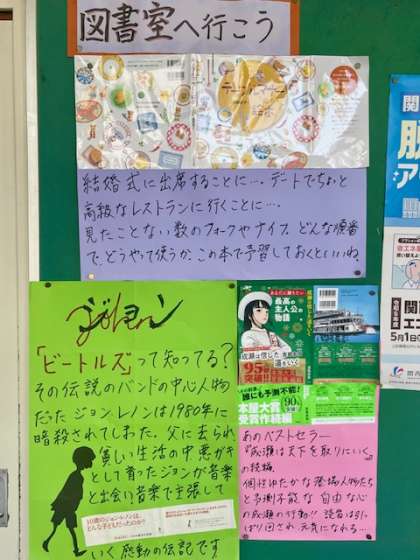 図書室へ行こう
結婚式に出席することに…。デートでちょと
高級なレストランに行くことに…。
見たことない数のフォークやナイフ。どんな順番
で、どうやって使うか、この本で予習しておくといいね。
ジョン
「ビートルズ」って知ってる？
その伝説のバンドの中心人物
だったジョンレノンは1980年に
暗殺されてしました。父に去られ
貧しい生活の中悪ガキ
として育ったジョンが音楽
と出会い音楽で主張して
いく感動の伝記です
10歳のジョン・レノンは、
どんな子どもだったのか?
あなたに贈りたい
最高の
主人公の
物語
成瀬は信じた
道をいく
95
突破!!
誰にも予測不能!
本屋大賞
受賞作続編
あのベストセラー
『成瀬は天下を取りにいく』
の続編。
個性ゆたかな登場人物たち
と予測不能な自由な心
の成瀬の行動!! 読者は引っ
ぱり回され元気になれる…
関
脱
ア
関
エコ
5月1日